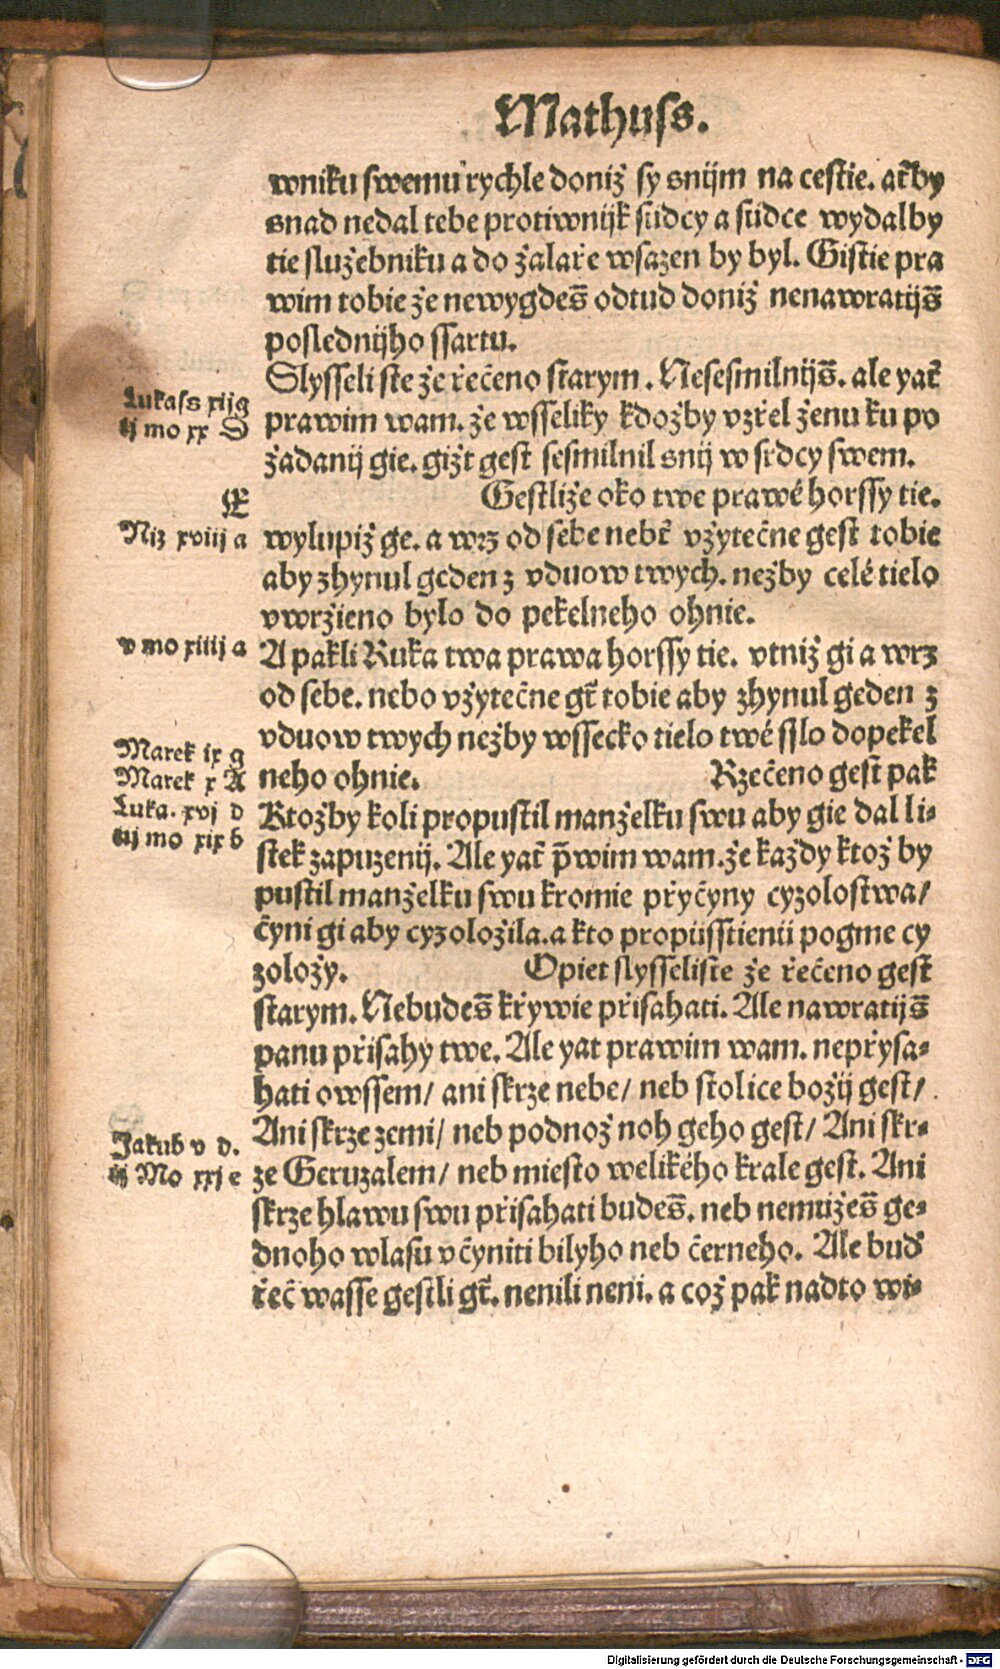 Mathuss.
wniku swemu rychle doniż sy snijm na cestie. ať by
snad nedal tebe protiwnijk sůdcy a sůdce wydalby
tie służebniku a do żalaře wsazen by byl. Gistie pra
wim tobie że newygdeš odtud doniż nenawratijš
poslednijho ssartu.
Slysseli ste że řečeno starym. Nesesmilnijš. ale yať
Lukass xij g
prawim wam. że wsseliky kdożby vzřel żenu ku po
iij mo xx D
żadanij gie. giżt gest sesmilnil snij w srdcy swem.
E
Gestliże oko twe prawé horssy tie.
Niz xviij a
wylupiż ge. a wrz od sebe nebť vżytečne gest tobie
aby zhynul geden z vduow twych. neżby celé tielo
vwrżieno bylo do pekelneho ohnie.
v mo xiiij a
A pakli Ruka twa prawa horssy tie. vtniż gi a wrz
od sebe. nebo vżytečne gt̃ tobie aby zhynul geden z
vduow twych neżby wssecko tielo twé sslo dopekel
Marek ix g
neho ohnie. Rzečeno gest pak
Marek x A
Luka. xvj d
Ktożby koli propustil manżelku swu aby gie dal li-
iiij mo xix b
stek zapuzenij. Ale yať p̃wim wam. że każdy ktoż by
pustil manżelku swu kromie přyčyny cyzolostwa/
čyni gi aby cyzolożila. a kto propůsstienů pogme cy
zoloży. Opiet slysseliste że řečeno gest
starym. Nebudeš křywie přisahati. Ale nawratijš
panu přisahy twe. Ale yat prawim wam. nepřysa-
hati owssem/ ani skrze nebe/ neb stolice bożij gest/
Ani skrze zemi/ neb podnoż noh geho gest/ Ani skr-
Jakub v d.
ze Geruzalem/ neb miesto welikého krale gest. Ani
iij Mo xxj e
skrze hlawu swu přisahati budeš. neb nemůżeš ge-
dnoho wlasu včyniti bilyho neb černeho. Ale buď
řeč wasse gestli gt̃. nenili neni. a coż pak nadto wi-
Digitalisierung gefördert durch die Deutsche Forschungsgemeinschaft - DFG